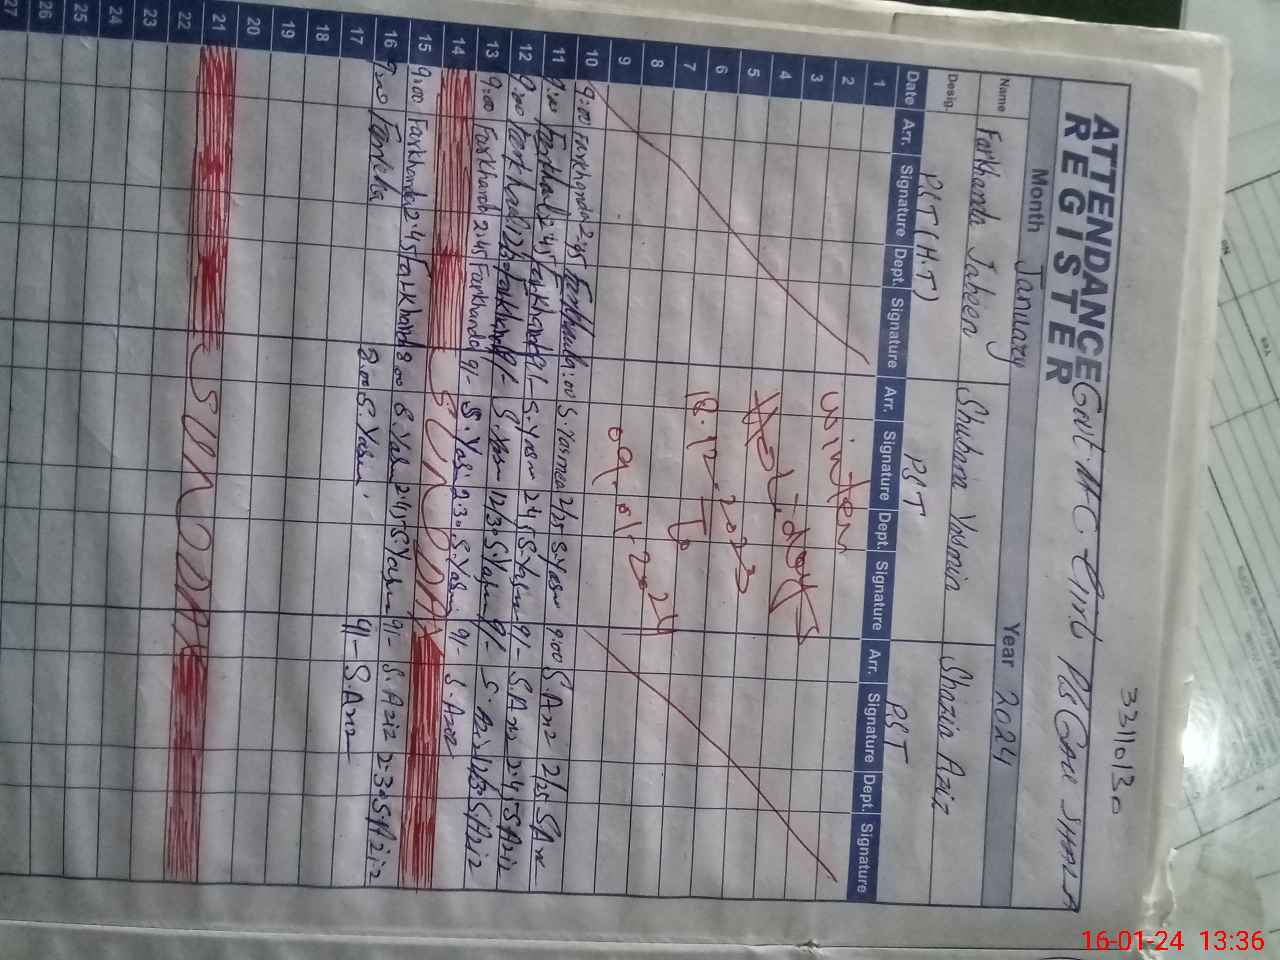 3311030
ATTENDANCE Govt. H.C. Girl
REGISTER
Month January Year 2024
Name Farkhanda Jabeen Shubana Yasmin Shazia Aziz
Desig. PST (H.T) PST PST
Date Arr. Signature Dept. Signature Arr. Signature Dept. Signature Arr. Signature Dept. Signature
1
2 winter
3
4 Holi-days
5
6 18.12.2023
7 To
8 09.01.2024
9
10 9:00 Farkhanda 2:45 9:00 S. Yasmeen 2/25 S. Yasm 9:00 S. Aziz 2/25 S. Aziz
11 9:00 Farkhand 2:45 Farkhand 9/- S. Yasm 2:45 S. Yasm 9/- S. Aziz 2:45 S Aziz
12 9:00 Farkhand 12/30 Farkhand 9/- S. Yasm 12/30 S. Yasm 9/- S. Aziz 12/30 S. Aziz
13 9:00 Farkhand 2:45 Farkhand 9/- S. Yasm 2:30 S. Yasmin 9/- S. Aziz
14 SUNDAY
15 9:00 Farkhanda 2:45 Farkhand 8:00 S. Yasm 2:45 S. Yasm 9/- S. Aziz 2:30 S. Aziz
16 9:00 Farkha 8:00 S. Yasmi 9/- S Aziz
17
18
19
20
21 SUNDAY
22
23
24
25
26
27
16-01-24 13:36